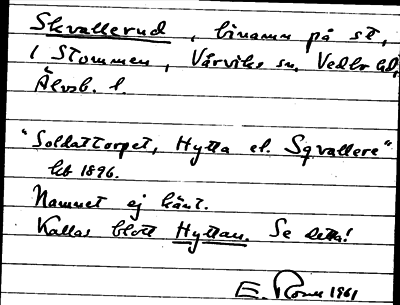 Skvallerud, binamn på st.
i Stommen, Vårviks sn, Vedbo hd,
Älvsb. l.
"Soldattorpet, Hytta el. Sqvallere"
kb 1896.
Namnet ej känt.
Kallas blott Hyttan. Se detta!
E. 1961